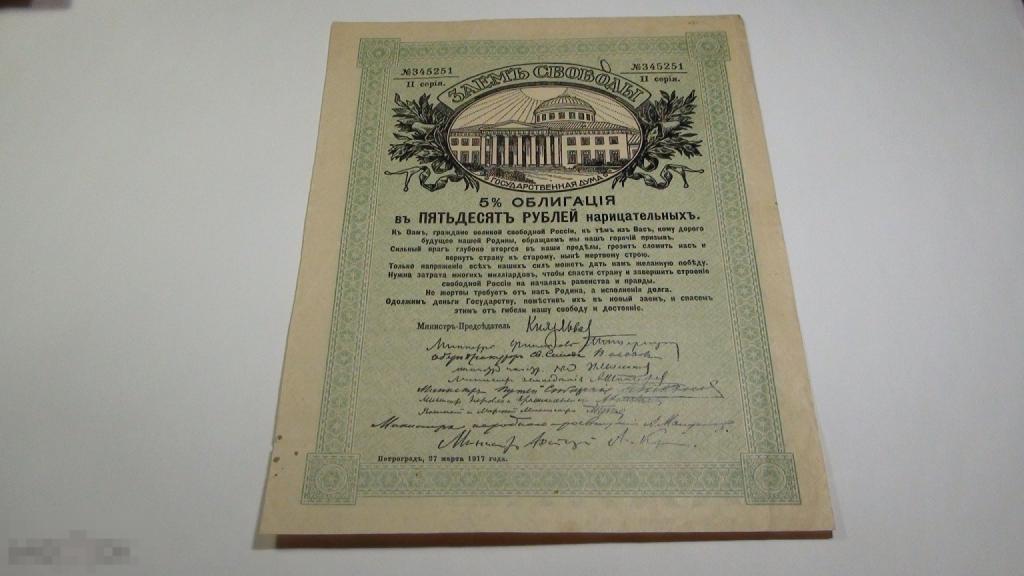 №345251 №345251
II серія. II серія.
ЗАЕМЪ СВОБОДЫ
ГОСУДАРСТВЕННАЯ ДУМА
5% ОБЛИГАЦІЯ
въ ПЯТЬДЕСЯТЪ РУБЛЕЙ нарицательныхъ.
Къ Вамъ, граждане великой свободной Россіи, къ тѣмъ изъ Васъ, кому дорого
будущее нашей Родины, обращаемъ мы нашъ горячій призывъ.
Сильный врагъ глубоко вторгся въ наши предѣлы, грозитъ сломить насъ и
вернуть страну къ старому, нынѣ мертвому строю.
Только напряженіе всѣхъ нашихъ силъ можетъ дать намъ желанную побѣду.
Нужна затрата многихъ милліардовъ, чтобы спасти страну и завершить строеніе
свободной Россіи на началахъ равенства и правды.
Не жертвы требуетъ отъ насъ Родина, а исполненія долга.
Одолжимъ деньги Государству, помѣстивъ ихъ въ новый заемъ, и спасемъ
этимъ отъ гибели нашу свободу и достояніе.
Министръ-Предсѣдатель Князь Львов
Министръ Финансовъ
Оберъ-Прокуроръ Св. Синода
Министръ
Министръ Путей Сообщенія
Военный и Морской Министръ
Министръ народнаго просвѣщенія А. Мануйлов
Министръ Юстиціи А. Керенскій
Петроградъ, 27 марта 1917 года.